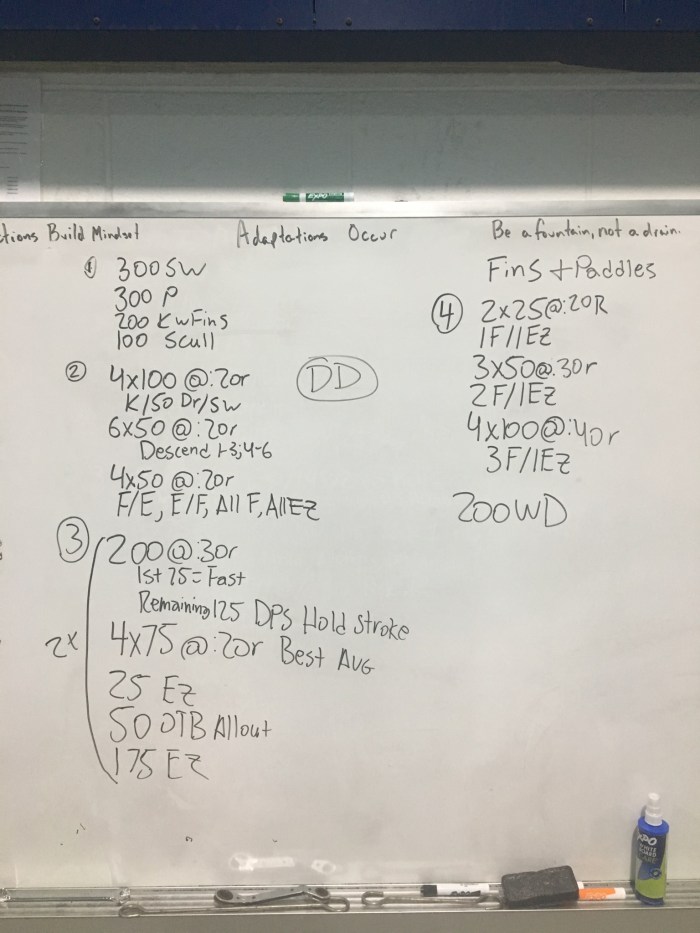 tions Build Mindset
Adaptations Occur
Be a fountain, not a drain.
① 300 SW
300 P
200 K w Fins
100 Scull
② 4x100 @:20r
K/50 Dr/SW
6x50 @:20r
Descend 1-3;4-6
4x50 @:20r
F/E, E/F, All F, All EZ
DD
③ 200@:30r
1st 75 = Fast
Remaining 125 DPS Hold Stroke
2x
4x75 @:20r Best AVG
25 EZ
50 OTB Allout
175 EZ
Fins + Paddles
④ 2x25@:20R
1F/1EZ
3x50@:30r
2F/1EZ
4x100@:40r
3F/1EZ
200WD
EXPO